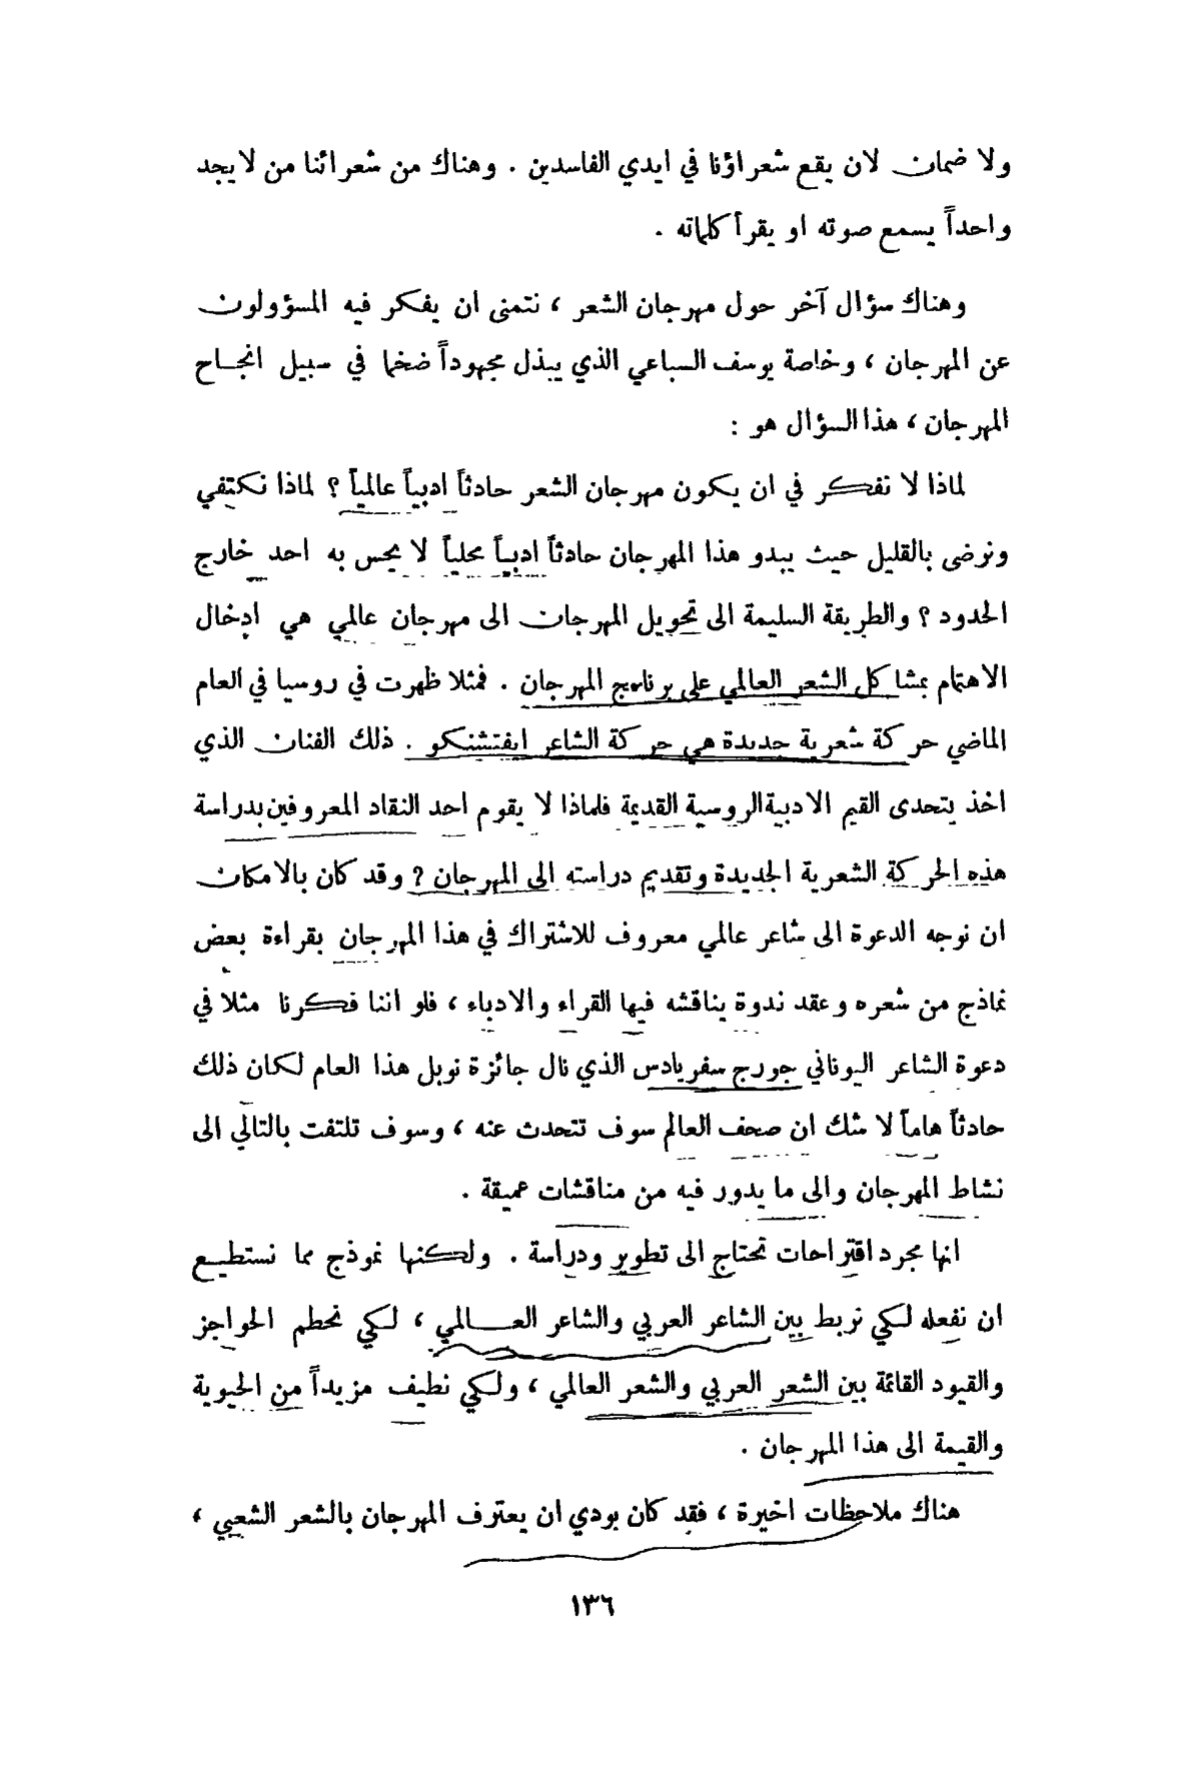 ولا ضمان لان يقع شعراؤنا في ايدي الفاسدين . وهناك من شعرائنا من لا يجد
واحداً يسمع صوته او يقرأ كلماته .
وهناك سؤال آخر حول مهرجان الشعر ، نتمنى ان يفكر فيه المسؤولون
عن المهرجان ، وخاصة يوسف السباعي الذي يبذل مجهوداً ضخما في سبيل انجاح
المهرجان ، هذا السؤال هو :
لماذا لا نفكر في ان يكون مهرجان الشعر حادثاً ادبياً عالمياً ؟ لماذا نكتفي
ونرضى بالقليل حيث يبدو هذا المهرجان حادثاً ادبياً محلياً لا يحس به احد خارج
الحدود ؟ والطريقة السليمة الى تحويل المهرجان الى مهرجان عالمي هي ادخال
الاهتمام بمشاكل الشعر العالمي على برنامج المهرجان . فمثلا ظهرت في روسيا في العام
الماضي حركة شعرية جديدة هي حركة الشاعر ايفتشنكو . ذلك الفنان الذي
اخذ يتحدى القيم الادبية الروسية القديمة فلماذا لا يقوم احد النقاد المعروفين بدراسة
هذه الحركة الشعرية الجديدة وتقديم دراسته الى المهرجان ? وقد كان بالامكان
ان نوجه الدعوة الى شاعر عالمي معروف للاشتراك في هذا المهرجان بقراءة بعض
نماذج من شعره وعقد ندوة يناقشه فيها القراء والادباء ، فلو اننا فكرنا مثلا في
دعوة الشاعر اليوناني جورج سفريادس الذي نال جائزة نوبل هذا العام لكان ذلك
حادثاً هاماً لا شك ان صحف العالم سوف تتحدث عنه ، وسوف تلتفت بالتالي الى
نشاط المهرجان والى ما يدور فيه من مناقشات عميقة .
انها مجرد اقتراحات تحتاج الى تطوير ودراسة . ولكنها نموذج مما نستطيع
ان نفعله لكي نربط بين الشاعر العربي والشاعر العــالمي ، لكي نحطم الحواجز
والقيود القائمة بين الشعر العربي والشعر العالمي ، ولكي نطيف مزيداً من الحيوية
والقيمة الى هذا المهرجان .
هناك ملاحظات اخيرة ، فقد كان بودي ان يعترف المهرجان بالشعر الشعبي ،
١٣٦